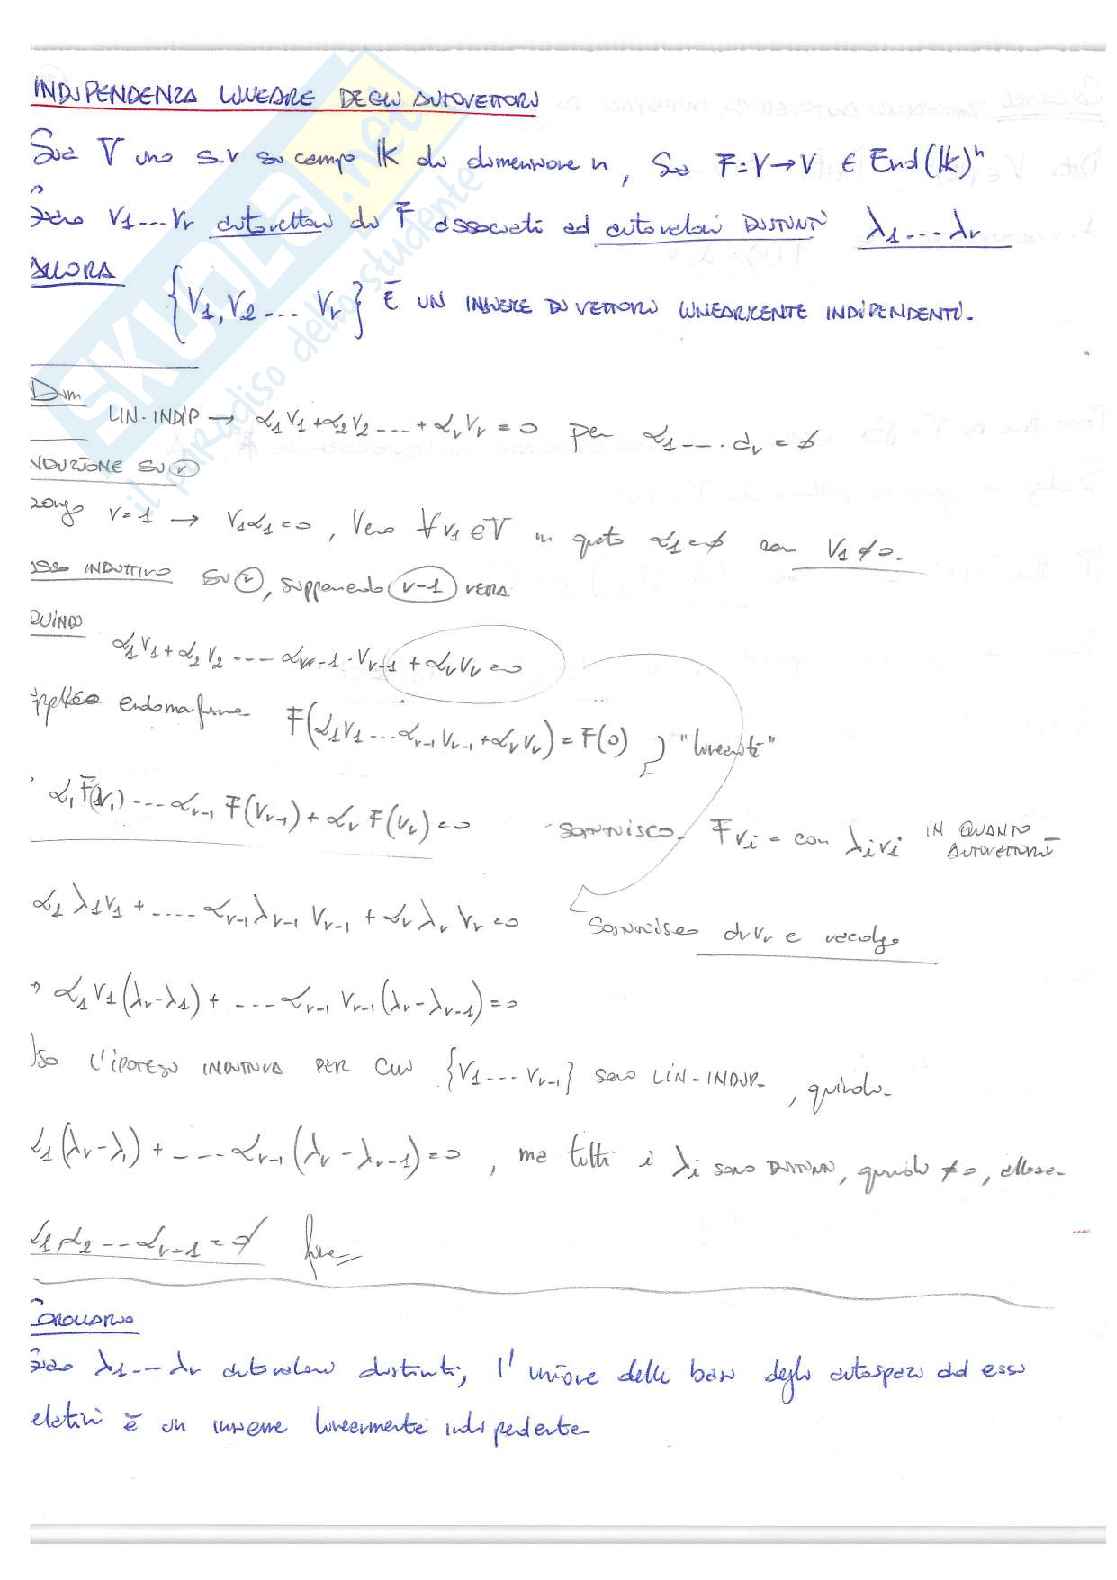 INDIPENDENZA LINEARE DEGLI AUTOVETTORI
Sia V uno s.v su campo IK di dimensione n, Sia F: V → V ∈ End(IK)ⁿ
Siano V1 --- Vr autovettori di F associati ad autovalori DISTINTI λ1 .... λr
ALLORA
{V1, V2 --- Vr} È UN INSIEME DI VETTORI LINEARMENTE INDIPENDENTI.
Dim
LIN-INDIP → α1V1 + α2V2 --- + αrVr = 0 per α1 ---- αr = ∅
NDUZIONE SU r
r = 1 → V1α1 = 0, Vero ∀ V1 ∈ V in quanto α1 = ∅ con V1 ≠ 0.
SSO INDUTTIVO SU r, supponendo r-1 VERA
QUINDI
α1V1 + α2V2 ---- αr-1 · Vr-1 + αrVr = 0
applico endomorfismo F(α1V1 --- αr-1Vr-1 + αrVr) = F(0) "linearità"
α1F(V1) --- αr-1 F(Vr-1) + αr F(Vr) = 0 SOSTITUISCO F vi = con λivi IN QUANTO AUTOVETTORI
α1λ1V1 + ---- αr-1λr-1 Vr-1 + αrλrVr = 0 Sostituisco αrVr e raccolgo
α1V1(λr-λ1) + ---- αr-1Vr-1(λr-λr-1) = 0
USO L'IPOTESI INDUTTIVA PER CUI {V1 --- Vr-1} sono LIN-INDIP, quindi
α1(λr-λ1) + ---- αr-1(λr-λr-1) = 0, ma tutti i λi sono DISTINTI, quindi ≠ 0, allora
α1, α2 --- αr-1 = ∅ fine
COROLLARIO
Siano λ1 --- λr autovalori distinti, l'unione delle basi degli autospazi ad essi
elativi è un insieme linearmente indipendente
SKUOLA.net
il paradiso dello studente